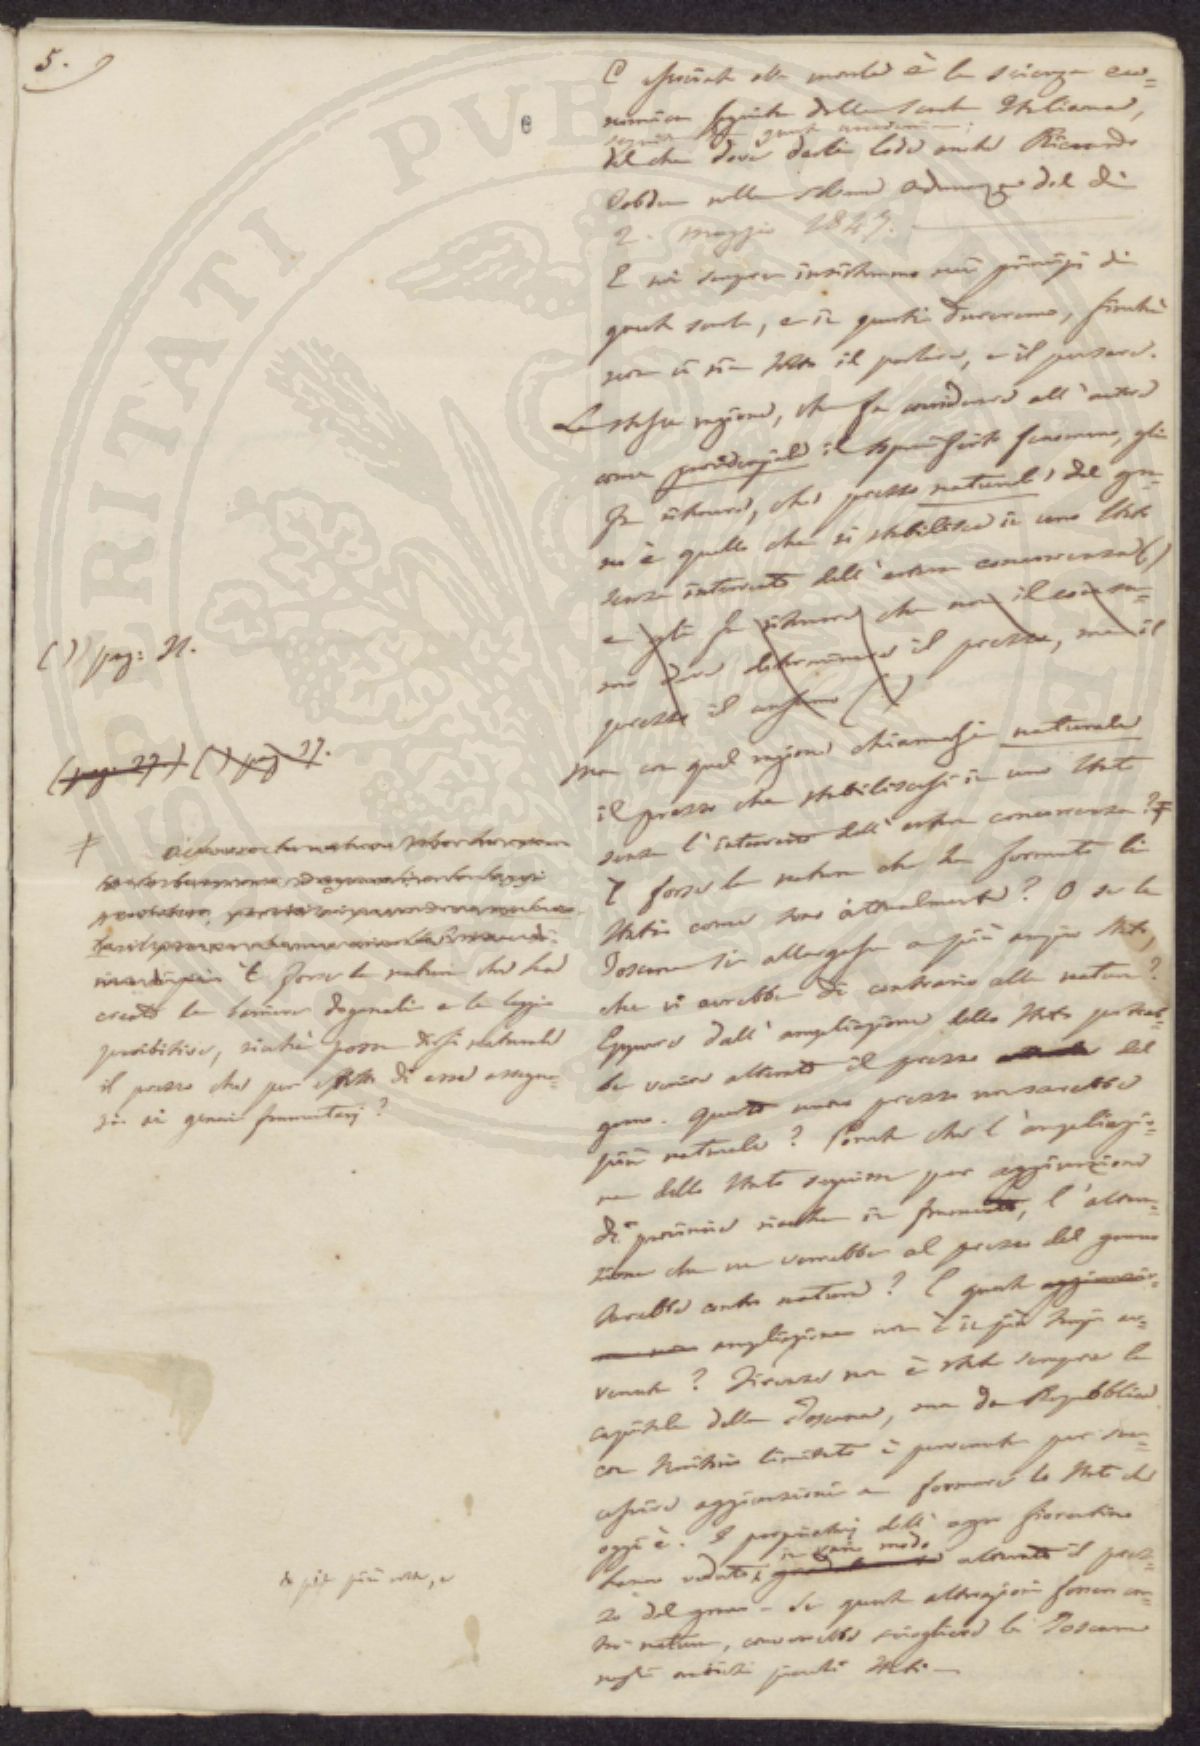 5.
E associata alla morale è la scienza eco=
nomica seguita dalla scuola Italiana,
seguita da quest'accademia;
del che dové darle lode anche Riccardo
Cobden nella solenne adunanza del dì
2. maggio 1847.
E noi sempre insisteremo nei principj di
questa scuola, e in questi dureremo, finché
non ci sia tolto il parlare, e il pensare.
La stessa ragione, che fa considerare all'autore
come provvidenziale il sopradetto fenomeno, gli
fa ritenere, che prezzo naturale del gra=
no è quello che si stabilisce in uno Stato
senza intervento dell'estera concorrenza ( )
e gli fa ritenere che non il consu=
mo deve determinare il prezzo, ma il
prezzo il consumo ( )
( ) pag: 21.
(pag: 27) ( ) pag 27.
Ma con qual ragione chiamasi naturale
il prezzo che stabiliscasi in uno Stato
senza l'intervento dell'estera concorrenza? ‡
È forse la natura che ha formato li
Stati come sono attualmente? O se la
Toscana si allargasse a più ampio Stato,
che vi avrebbe di contrario alla natura?
Eppure dall'ampliazione dello Stato potreb=
be venire alterato il prezzo del
grano. Questo nuovo prezzo non sarebbe
più naturale? Ponete che l'ampliazio=
ne dello Stato seguisse per aggiunzione
di provincie ricche in frumento, l'altera=
zione che ne verrebbe al prezzo del grano
sarebbe contro natura? E questa aggiunzio=
ne ampliazione non è in più tempi av=
venuta? Firenze non è stata sempre la
capitale della Toscana, ma da Repubblica
con territorio limitato è pervenuta per suc=
cessive aggiunzioni a formare lo Stato che
oggi è. I proprietarj dell'agro fiorentino
in vario modo
hanno veduto alterato il prez=
zo del grano - Se queste alterazioni fossero con=
tro natura, converrebbe sciogliere la Toscana
negli antichi piccoli Stati. —
‡
È forse la natura che ha
creato le barriere doganali e le leggi
proibitive, sicché possa dirsi naturale
il prezzo che per effetto di esse assegna=
si ai generi frumentarj?
da più più volte, e